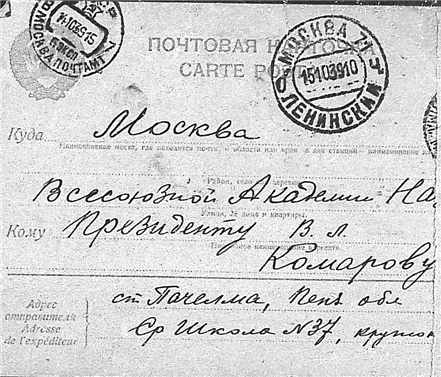 МОСКВА ПОЧТАМТ
14 10 39 15
ЭКСП
ПОЧТОВАЯ КАРТОЧКА
CARTE POSTALE
МОСКВА 71
15 10 39 10
ЛЕНИНСКИЙ
Куда Москва
Наименование места, где находится почта, области или края, а для станций наименование
Район, село
Всесоюзной Академии На
Улица, № дома и квартиры
Кому Президенту В. Л.
наименование
Комарову
Адрес отправителя
Adresse de l'expéditeur
ст Пачелма, Пенз обл
Ср Школа N37,